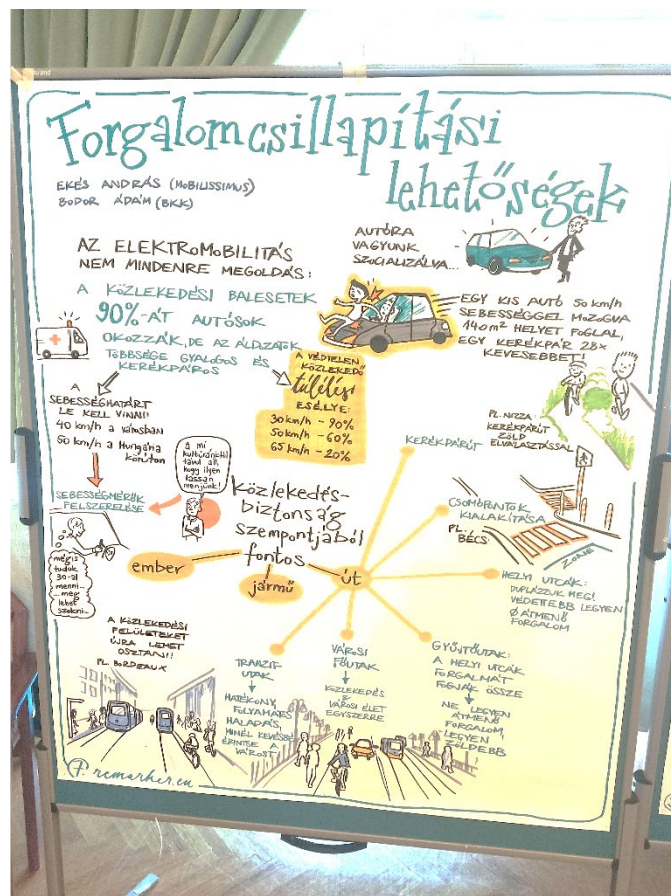 Forgalomcsillapítási
lehetőségek
EKÉS ANDRÁS (MOBILISSIMUS)
BODOR ÁDÁM (BKK)
AZ ELEKTROMOBILITÁS
NEM MINDENRE MEGOLDÁS:
A KÖZLEKEDÉSI BALESETEK
90%-ÁT AUTÓSOK
OKOZZÁK, DE AZ ÁLDOZATOK
TÖBBSÉGE GYALOGOS ÉS
KERÉKPÁROS
AUTÓRA
VAGYUNK
SZOCIALIZÁLVA...
EGY KIS AUTÓ 50 km/h
SEBESSÉGGEL MOZOGVA
140 m² HELYET FOGLAL,
EGY KERÉKPÁR 28x
KEVESEBBET!
A VÉDTELEN
KÖZLEKEDŐ
túlélési
ESÉLYE:
30 km/h - 90%
50 km/h - 60%
65 km/h - 20%
A
SEBESSÉGHATÁRT
LE KELL VINNI!
40 km/h a városban
60 km/h a Hungária
körúton
SEBESSÉGMÉRŐK
FELSZERELÉSE
A mi
kultúránktól
távol áll,
hogy ilyen
lassan
menjünk!
mégis
tudok
30-al
menni...
...meg
lehet
szokni...
Közlekedés-
biztonság
szempontjából
fontos
ember
jármű
út
KERÉKPÁRÚT
PL. NIZZA:
KERÉKPÁRÚT
ZÖLD
ELVÁLASZTÁSSAL
CSOMÓPONTOK
KIALAKÍTÁSA
PL.
BÉCS
ZONE
HELYI UTCÁK:
DUPLÁZZUK MEG!
VÉDETTEBB LEGYEN
Ø ÁTMENŐ
FORGALOM
GYŰJTŐUTAK:
A HELYI UTCÁK
FORGALMÁT
FOGJÁK ÖSSZE
NE LEGYEN
ÁTMENŐ
FORGALOM,
LEGYEN
ZÖLDEBB
VÁROSI
FŐUTAK
KÖZLEKEDÉS
& VÁROSI ÉLET
EGYSZERRE
TRANZIT
UTAK
HATÉKONY,
FOLYAMATOS
HALADÁS,
MINÉL KEVÉSBÉ
ÉRINTSE A
VÁROST
A KÖZLEKEDÉSI
FELÜLETEKET
ÚJRA LEHET
OSZTANI!!
PL. BORDEAUX
remarker.eu